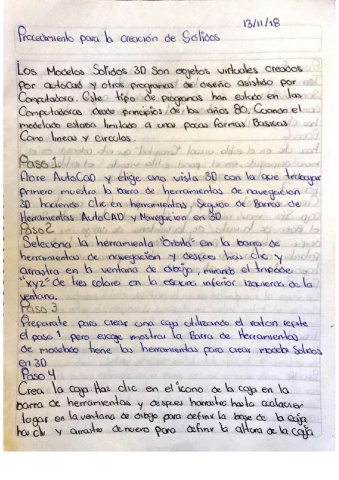 13/11/18
Procedimiento para la creación de Solidos
Los Modelos Solidos 3D Son objetos virtuales creados
por autoCad y otros programas de diseño asistido por
Computadora. Este tipo de programas han estado en las
Computadoras desde principios de los años 80, Cuando el
modelado estaba limitado a unas pocas formas Basicas
Como lineas y circulos.
Paso 1
Abre AutoCAD y elige una vista 3D con la que trabajar
primero muestra la barra de herramientas de navegacion
3D haciendo Clic en herramientas, Seguido de Barras de
Herramientas AutoCAD y Navegacion en 3D
Paso 2
Selecciona la herramienta "Orbita" en la barra de
herramientas de navegación y despues haz clic y
arrastra en la ventana de dibujo, mirando el tripode
"xyz" de tres colores en la esquina inferior izquierda de la
ventana.
Paso 3
Preparate para crear una caja utilizando el raton repite
el paso 1 pero escoge mostrar la Barra de Herramientas
de modelado tiene las herramientas para crear Solidos
en 3D
Paso 4
Crea la caja Haz clic en el icono de la caja en la
barra de herramientas y despues hasta cualquier
logar en la ventana de dibujo para definir la base de la caja
haz clic y arrastra de nuevo para definir la altura de la caja